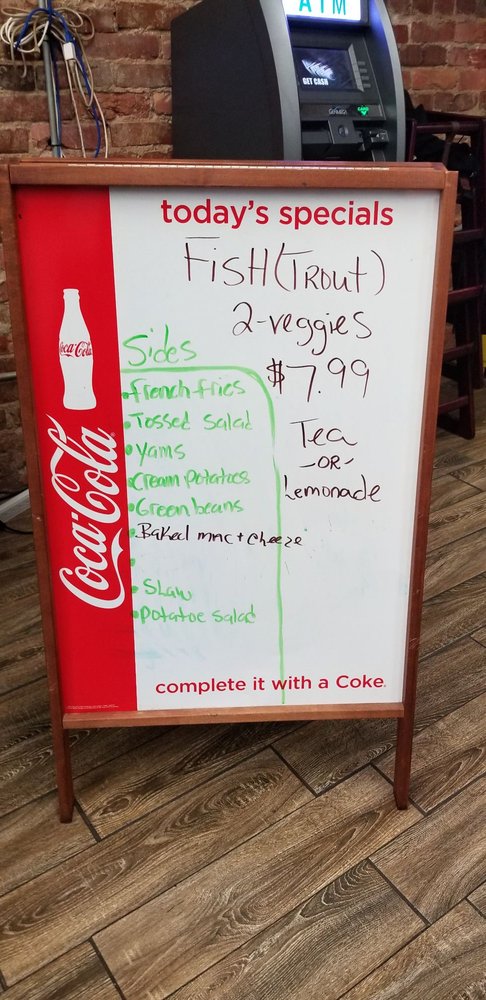 ATM
GET CASH
today's specials
FISH (TROUT)
2-veggies
$7.99
Tea
-OR-
Lemonade
Sides
• french fries
• Tossed Salad
• Yams
• Cream Potatoes
• Green beans
• Baked mac + cheeze
•
• Slaw
• Potatoe Salad
Coca-Cola
Coca-Cola
complete it with a Coke.